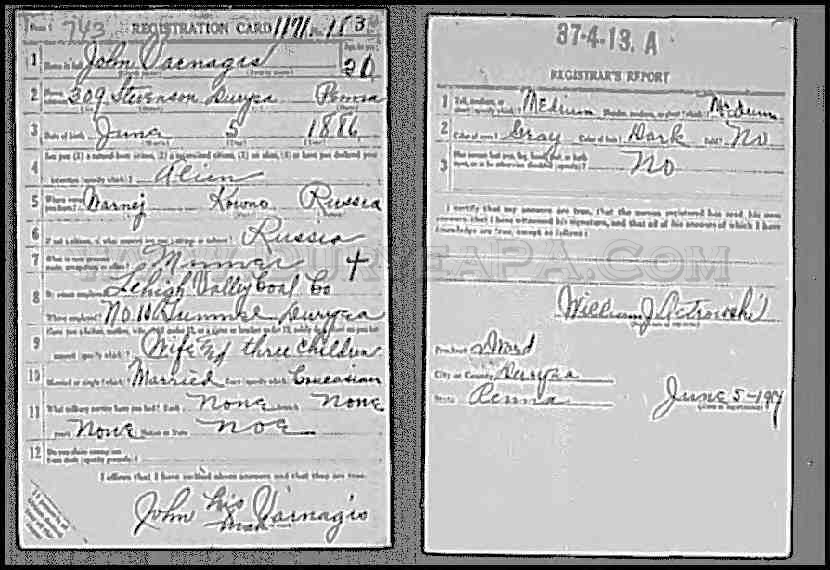 Form 1 743 REGISTRATION CARD 1171 No. 153
1 Name in full John Varnagis Age, in yrs.
2 Home address 309 Stevenson Duryea Penna
3 Date of birth June 5 1886
4 Are you (1) a natural-born citizen, (2) a naturalized citizen, (3) an alien, (4) or have you declared your
intention (specify which)? Alien
5 Where were you born? Kowno Russia
6 If not a citizen, of what country are you a citizen or subject? Russia
7 What is your present trade, occupation, or office? Minner 4
8 By whom employed? Lehigh Vally Coal Co
Where employed? No. Duryea
9 Have you a father, mother, wife, child under 12, or a sister or brother under 12, solely dependent on you for
support (specify which)? Wife and three Children
10 Married or single (which)? Married Race (specify which)? Concasion
11 What military service have you had? Rank None branch None
years None Nation or State NOE
12 Do you claim exemption from draft (specify grounds)?
I affirm that I have verified above answers and that they are true.
John his mark Varnagis
37-4-13. A
REGISTRAR'S REPORT
1 Tall, medium, or short (specify which)? Medium Slender, medium, or stout (which)? Medium
2 Color of eyes? Gray Color of hair? Dark Bald? No
3 Has person lost arm, leg, hand, foot, or both eyes, or is he otherwise disabled (specify)? No
I certify that my answers are true, that the person registered has read his own
answers, that I have witnessed his signature, and that all of his answers of which I have
knowledge are true, except as follows:
WWW.DURYEAPA.COM
William J
Precinct
City or County Duryea
State Penna June 5-1917